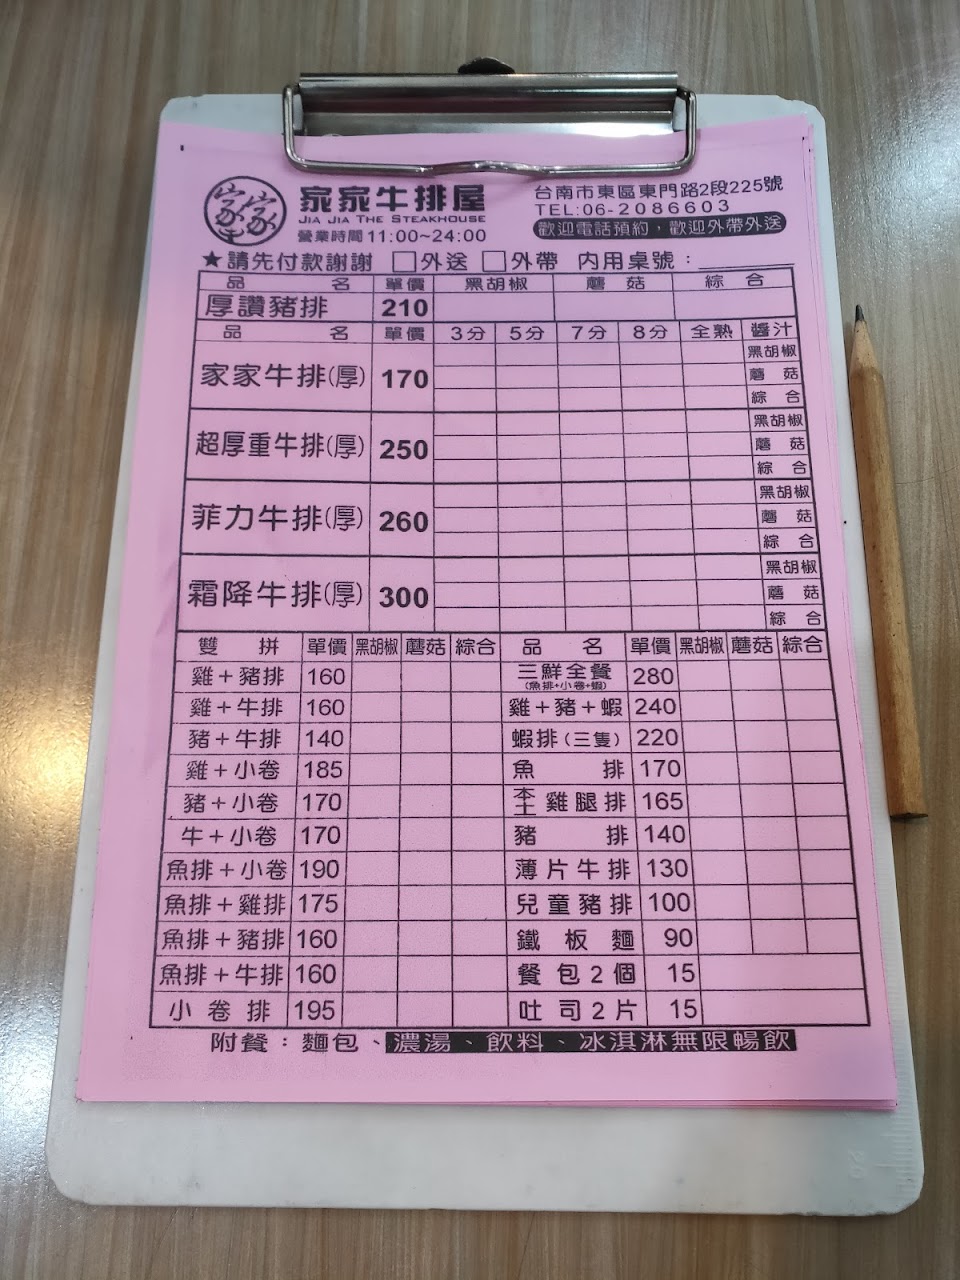 家家
家家牛排屋
JIA JIA THE STEAKHOUSE
營業時間11:00~24:00
台南市東區東門路2段225號
TEL:06-2086603
歡迎電話預約，歡迎外帶外送
★請先付款謝謝 □外送 □外帶 內用桌號：
品名 單價 黑胡椒 蘑菇 綜合
厚讚豬排 210
品名 單價 3分 5分 7分 8分 全熟 醬汁
家家牛排(厚) 170 黑胡椒
蘑菇
綜合
超厚重牛排(厚) 250 黑胡椒
蘑菇
綜合
菲力牛排(厚) 260 黑胡椒
蘑菇
綜合
霜降牛排(厚) 300 黑胡椒
蘑菇
綜合
雙拼 單價 黑胡椒 蘑菇 綜合 品名 單價 黑胡椒 蘑菇 綜合
雞+豬排 160 三鮮全餐 280
(魚排+小卷+蝦)
雞+牛排 160 雞+豬+蝦 240
豬+牛排 140 蝦排(三隻) 220
雞+小卷 185 魚排 170
豬+小卷 170 雞腿排 165
牛+小卷 170 豬排 140
魚排+小卷 190 薄片牛排 130
魚排+雞排 175 兒童豬排 100
魚排+豬排 160 鐵板麵 90
魚排+牛排 160 餐包2個 15
小卷排 195 吐司2片 15
附餐：麵包、濃湯、飲料、冰淇淋無限暢飲